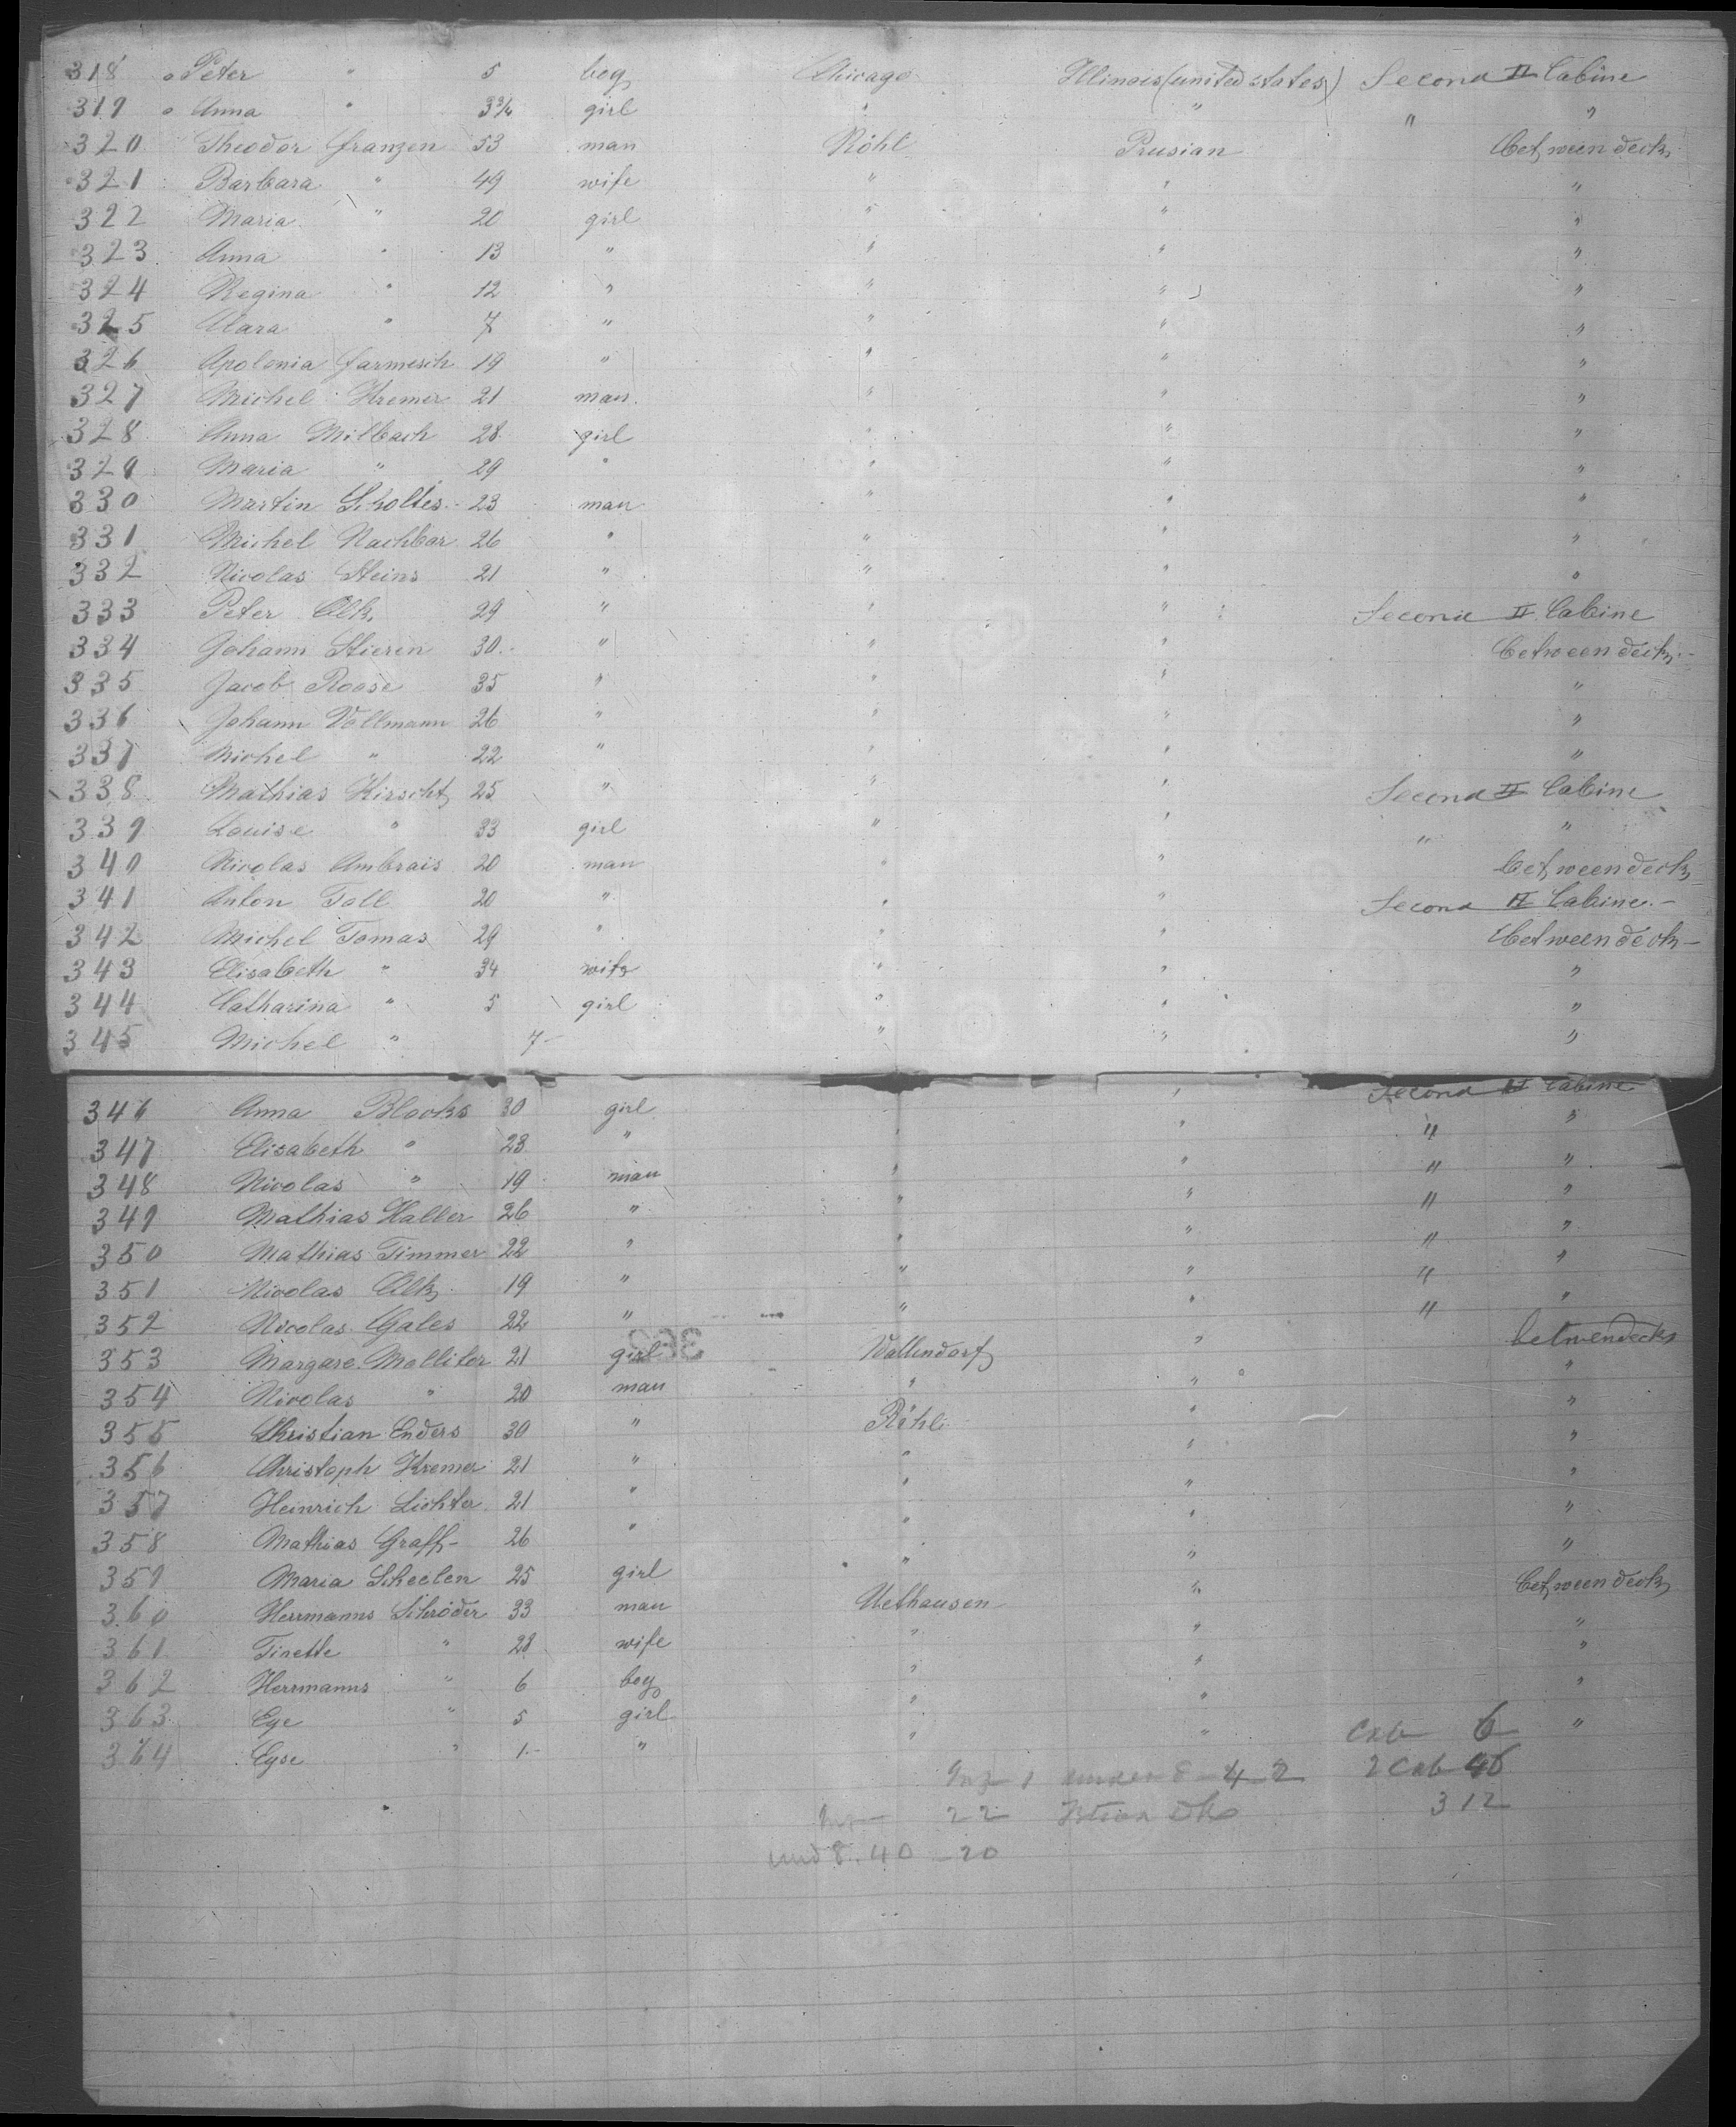 318 Peter " 5 boy Chicago Illinois (united states) Second II Cabine
319 Anna " 3¾ girl " " " "
320 Theodor franzen 53 man Röhl Prusian between deck
321 Barbara " 49 wife " " "
322 Maria " 20 girl " " "
323 Anna " 13 " " " "
324 Regina " 12 " " " "
325 Clara " 7 " " " "
326 Apolonia farmesch 19 " " " "
327 Michel Kremer 21 man " " "
328 Anna Milbach 28 girl " " "
329 Maria " 29 " " " "
330 Martin Scholtes 23 man " " "
331 Michel Nachbar 26 " " " "
332 Nicolas Steins 21 " " " "
333 Peter Olk 29 " " " Second II Cabine
334 Johann Stieren 30 " " " between deck
335 Jacob Roose 35 " " " "
336 Johann Vollmann 26 " " " "
337 Michel " 22 " " " "
338 Mathias Hirscht 25 " " " Second II Cabine
339 Louise " 33 girl " " " "
340 Nicolas Ambrais 20 man " " between deck
341 Anton Toll 20 " " " Second II Cabine
342 Michel Tomas 29 " " " between deck
343 Elisabeth " 34 wife " " "
344 Catharina " 5 girl " " "
345 Michel " 7 " " "
346 Anna Blocks 30 girl " Second II Cabine
347 Elisabeth " 23 " " " " "
348 Nicolas " 19 man " " " "
349 Mathias Haller 26 " " " " "
350 Mathias Timmer 22 " " " " "
351 Nicolas Olk 19 " " " " "
352 Nicolas Gales 22 " " " " "
353 Margare Mollitor 21 girl Wallendorf " betwendecks
354 Nicolas " 20 man " " "
355 Christian Enders 30 " Röhl " "
356 Christoph Kremer 21 " " " "
357 Heinrich Lichter 21 " " " "
358 Mathias Graff 26 " " " "
359 Maria Scheelen 25 girl " " "
360 Herrmanns Schröder 33 man Uethausen " between deck
361 Tinette " 28 wife " " "
362 Herrmanns " 6 boy " " "
363 Eye " 5 girl " " "
364 Eyse " 1 " " " "
Cab 6
1 under 8 4 2 2 Cab 46
22 312
und 8. 40 20